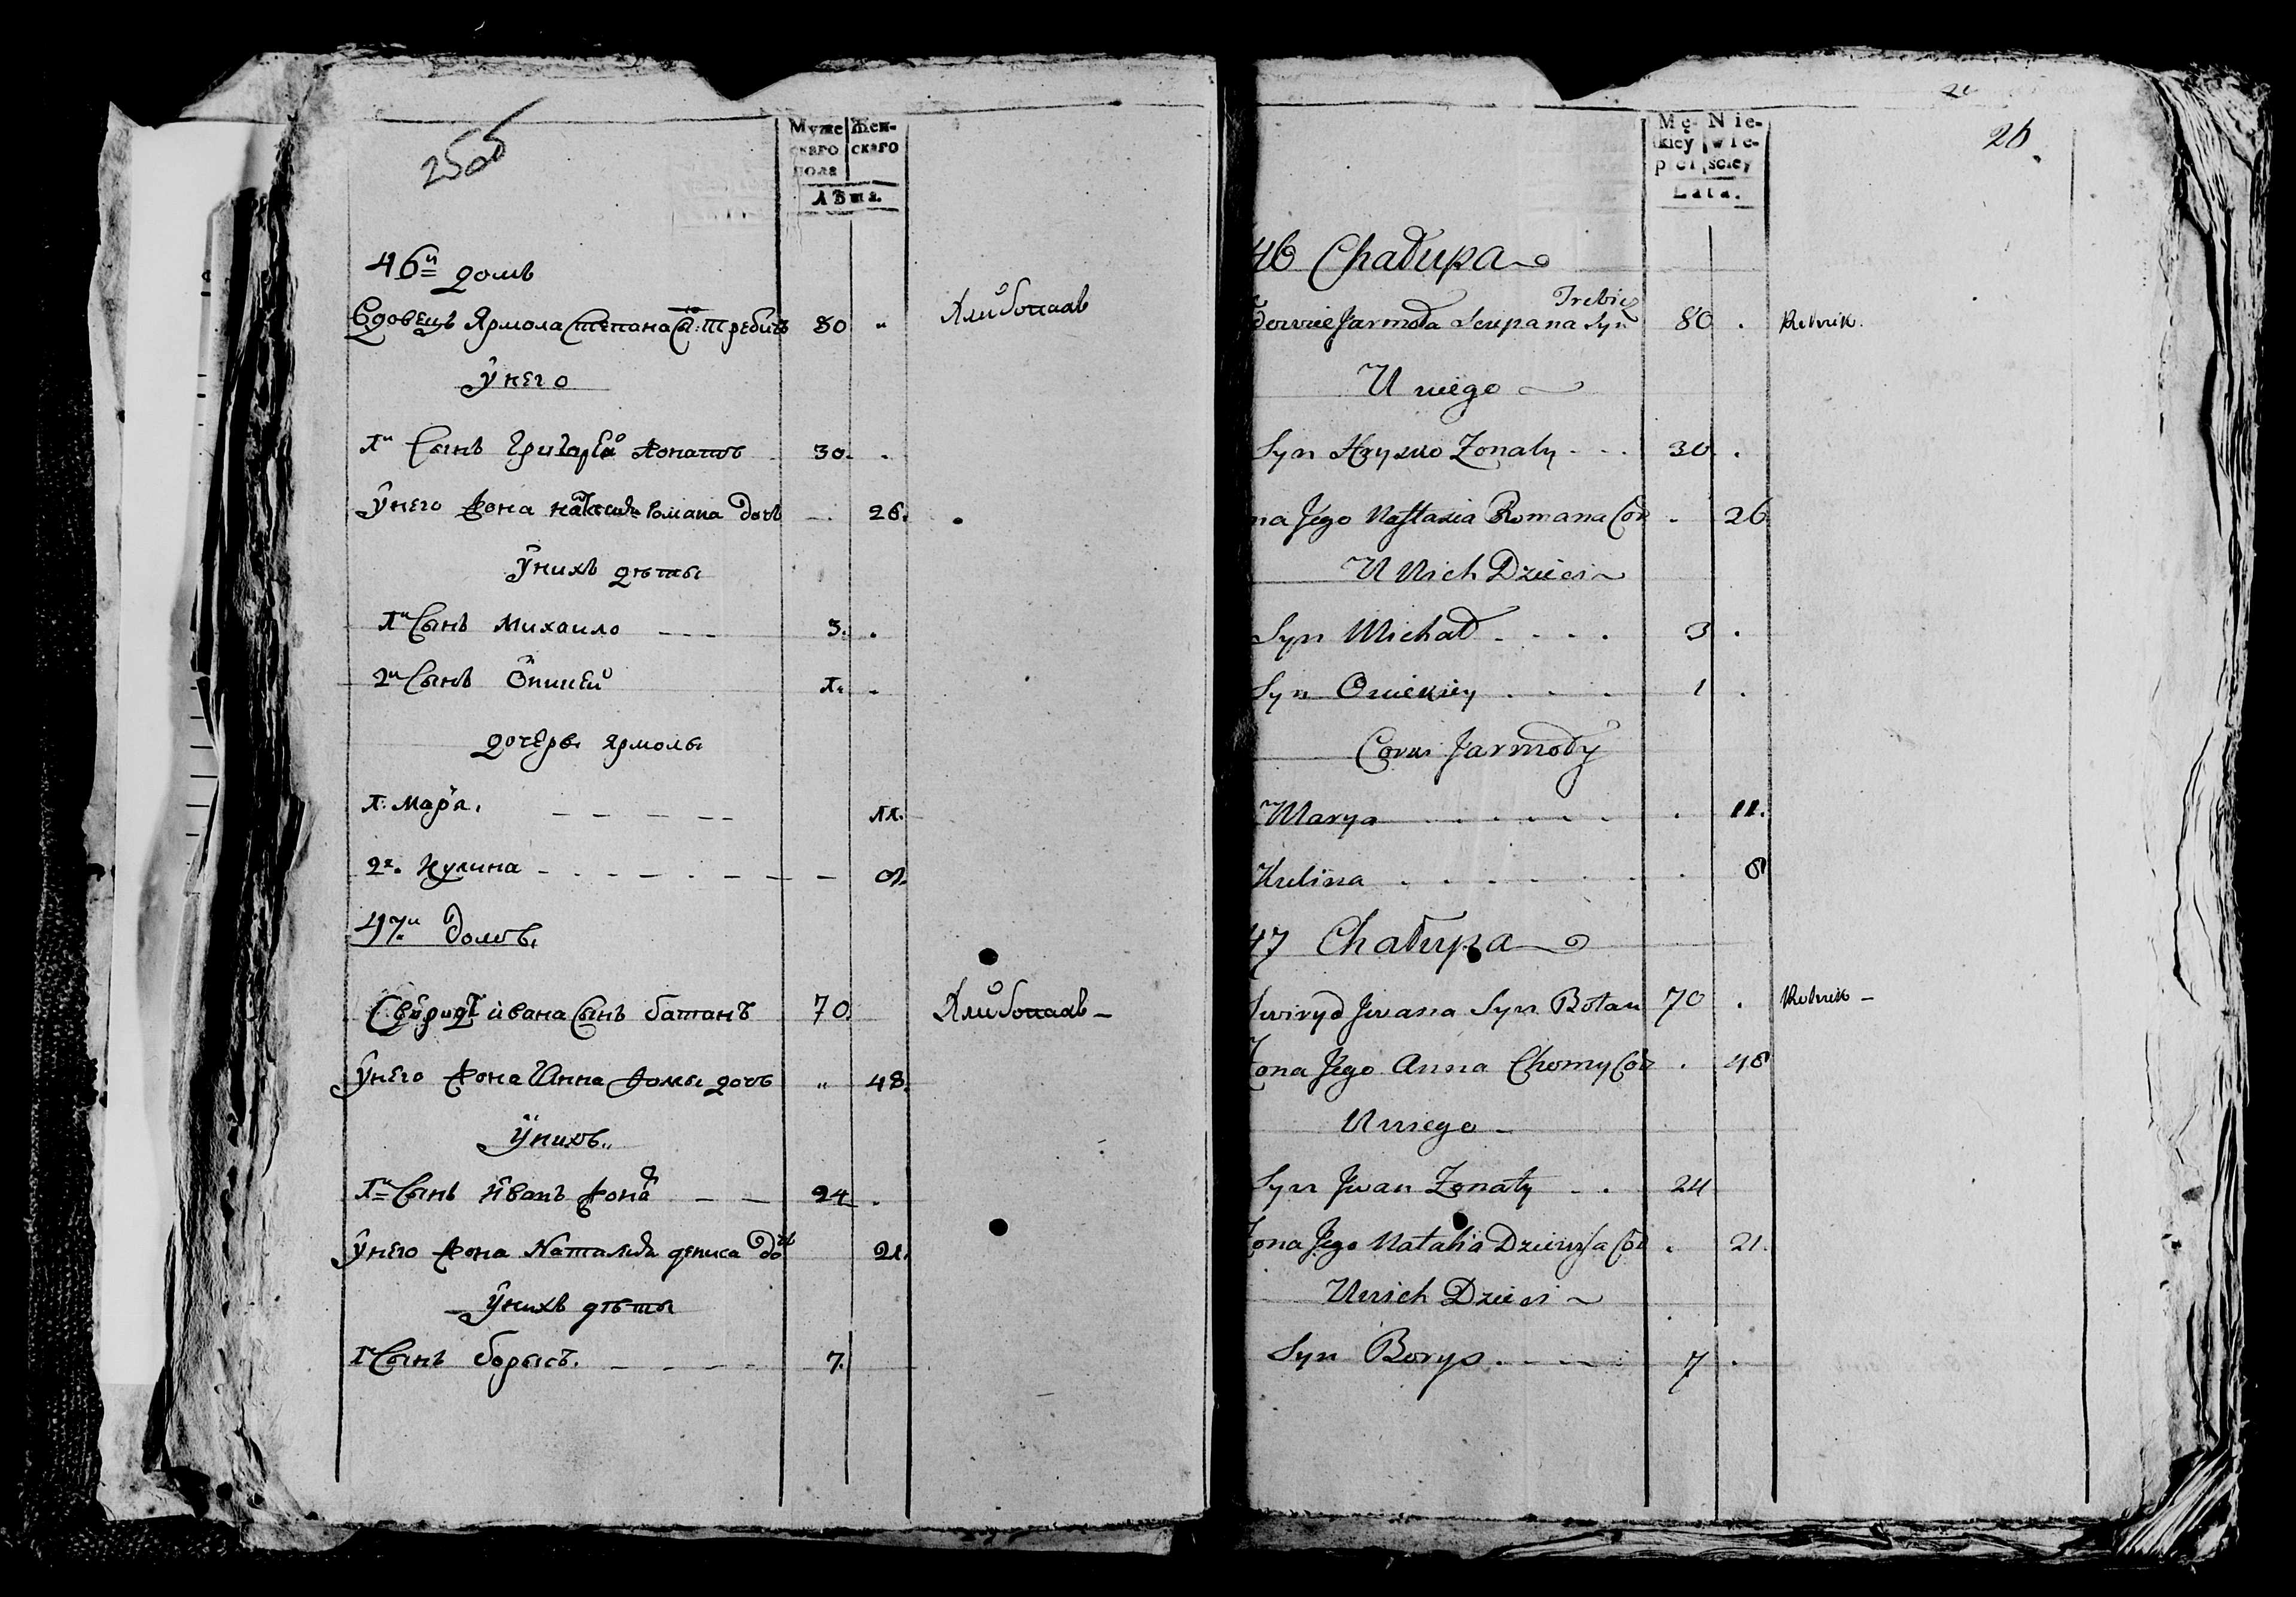 25об
Муже Жен-
скаго скаго
пола
Лѣта.
46й домъ
Вдовецъ Ярмола Степана Сы: Требичъ 80 "
Хлибопашъ
Унего
1й Сынъ Григорей Жонатъ 30. .
Унего Жона Настасия Романа дочь 26.
Унихъ дѣты
1й Сынъ Михаило 3. .
2й Сынъ 1. .
дочеры Ярмолы
1. Маря. 11.
2я. Кулина 8.
47й домъ.
Свиридъ ивана Сынъ батанъ 70.
Хлибопашъ
Унего Жона Анна Хомы дочь " 48.
Унихъ..
1й Сынъ иванъ Жона 24 .
Унего Жона Наталия дениса дочь 21.
Унихъ дѣты
1й Сынъ борысъ. 7.
26
Mę- Nie-
skiey wie-
płci ściey
Lata.
46 Chałupa
Trebicz
Jarmoła Scepana Syn 80 . Rolnik.
U niego
Syn Hryzko Zonaty 30 .
na Jego Nastazia Romana Cór . 26
U Nich Dzieci
Syn Michał 3 .
Syn 1 .
Corki Jarmoły
Marya . 11.
Kulina . 8
47 Chałupa
Swiryd Jwana Syn Botan 70 . Rolnik
Zona Jego Anna Chomy Cór . 48
U niego
Syn Jwan Zonaty 24
Zona Jego Natalia Dzienisa Cór . 21.
U nich Dzieci
Syn Borys 7 .